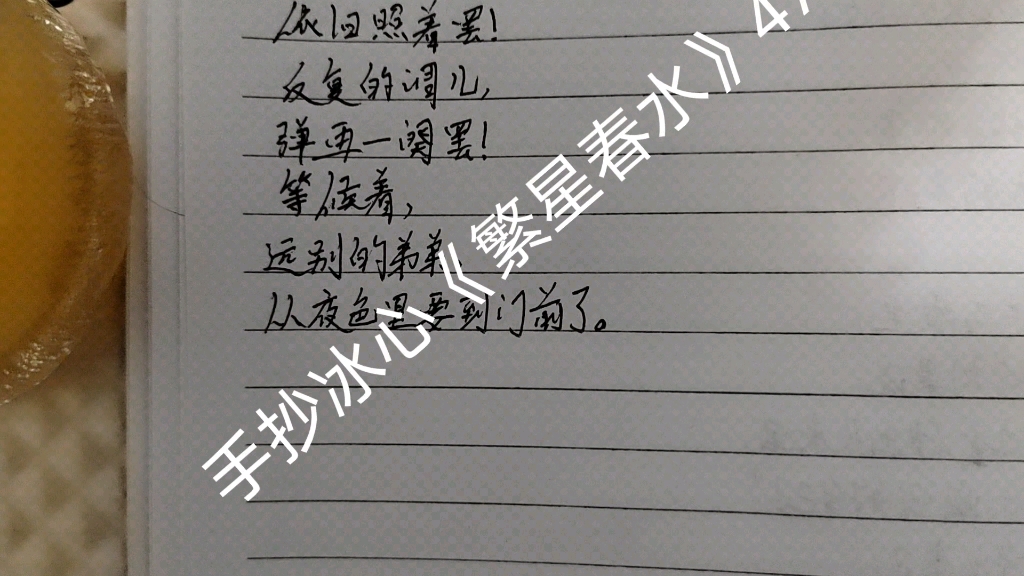 依旧照着罢!
反复的调儿,
弹再一阕罢!
等候着,
远别的弟弟,
从夜色里要到门前了。
手抄冰心《繁星春水》47